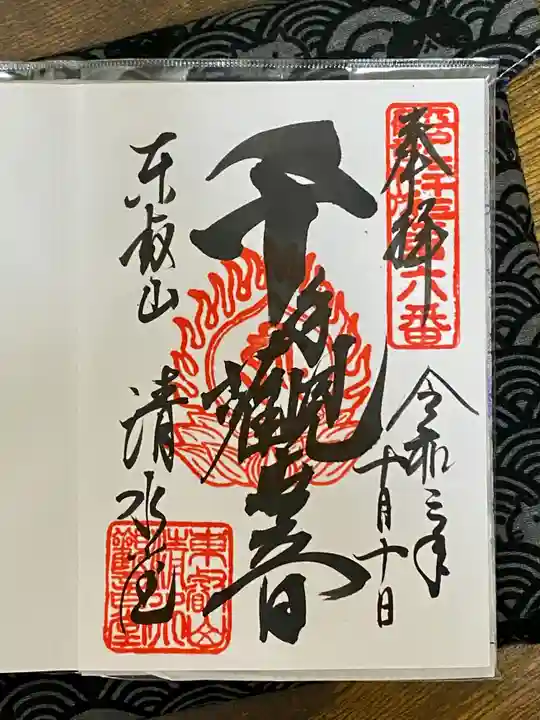 奉拝
令和三年
十月十日
千手觀世音
東叡山
清水堂
六番
東叡山
觀音堂